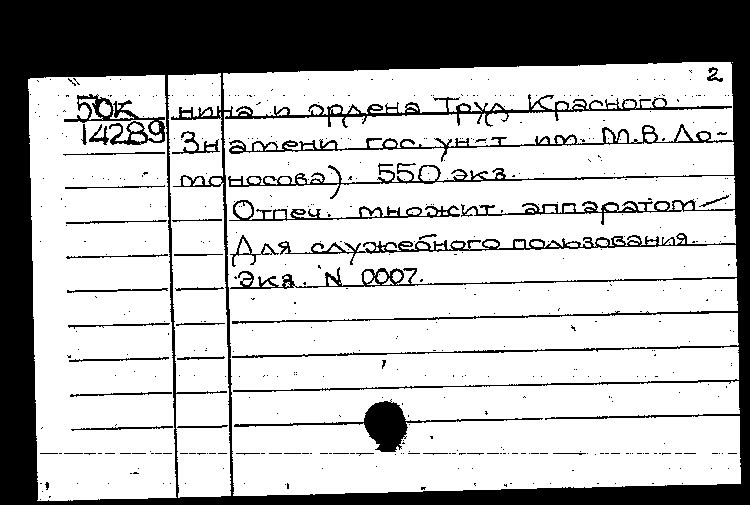 2
50к нина и ордена Труд. Красного
14289 Знамени гос. ун-т им. М.В. Ло-
моносова). 550 экз.
Отпеч. множит. аппаратом
Для служебного пользования.
Экз. N 0007.